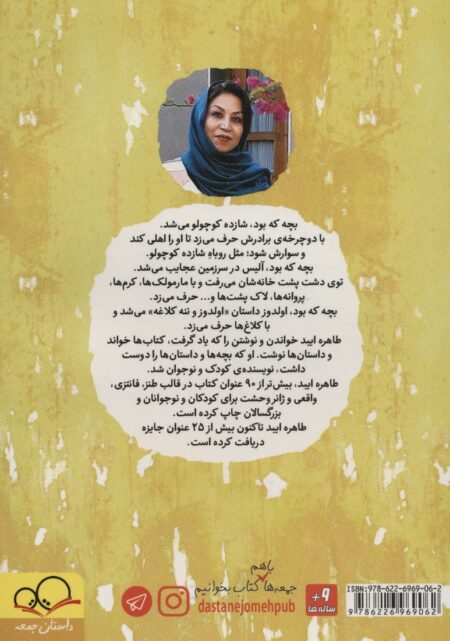 بچه که بود، شازده کوچولو می‌شد.
با دوچرخه‌ی برادرش حرف می‌زد تا او را اهلی کند
و سوارش شود؛ مثل روباهِ شازده کوچولو.
بچه که بود، آلیس در سرزمین عجایب می‌شد.
توی دشت پشت خانه‌شان می‌رفت و با مارمولک‌ها، کرم‌ها،
پروانه‌ها، لاک پشت‌ها و... حرف می‌زد.
بچه که بود، اولدوز داستان «اولدوز و ننه کلاغه» می‌شد و
با کلاغ‌ها حرف می‌زد.
طاهره ایبد خواندن و نوشتن را که یاد گرفت، کتاب‌ها خواند
و داستان‌ها نوشت. او که بچه‌ها و داستان‌ها را دوست
داشت، نویسنده‌ی کودک و نوجوان شد.
طاهره ایبد، بیش‌تر از ۹۰ عنوان کتاب در قالب طنز، فانتزی،
واقعی و ژانر وحشت برای کودکان و نوجوانان و
بزرگسالان چاپ کرده است.
طاهره ایبد تاکنون بیش از ۲۵ عنوان جایزه
دریافت کرده است.
باهم
جمعه‌ها کتاب بخوانیم
dastanejomehpub
+۹
ساله ها
ISBN:978-622-6969-06-2
9 786226 969062
داستان جمعه